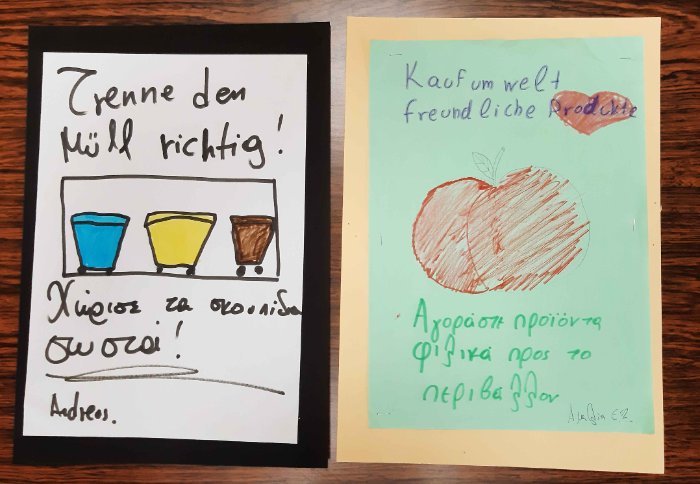 Trenne den
Müll richtig!
Χώρισε τα σκουπίδια
σωστά!
Andreas.
Kauf umwelt
freundliche Produkte
Αγοράστε προϊόντα
φιλικά προς το
περιβάλλον